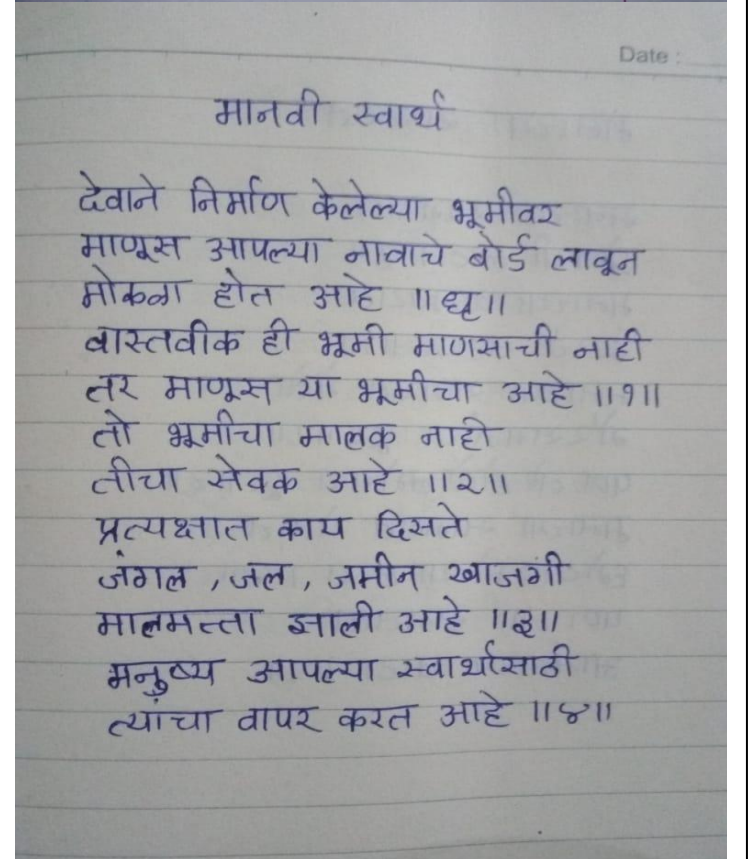 Date :
मानवी स्वार्थ
देवाने निर्माण केलेल्या भूमीवर
माणूस आपल्या नावाचे बोर्ड लावून
मोकळा होत आहे ॥धृ॥
वास्तवीक ही भूमी माणसाची नाही
तर माणूस या भूमीचा आहे ॥१॥
तो भूमीचा मालक नाही
तीचा सेवक आहे ॥२॥
प्रत्यक्षात काय दिसते
जंगल , जल , जमीन खाजगी
मालमत्ता झाली आहे ॥३॥
मनुष्य आपल्या स्वार्थासाठी
त्यांचा वापर करत आहे ॥४॥